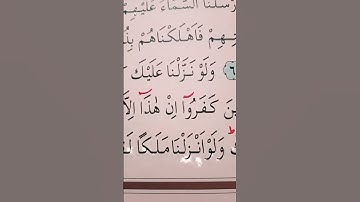 رْسَلْنَا السَّمَٓاءَ عَلَيْهِمْ
هِمْ فَاَهْلَكْنَاهُمْ بِذُ
﴿٦﴾ وَلَوْ نَزَّلْنَا عَلَيْكَ
ينَ كَفَرُٓوا اِنْ هٰذَٓا اِلَّا
كٌ وَلَوْ اَنْزَلْنَا مَلَكًا لَقُ